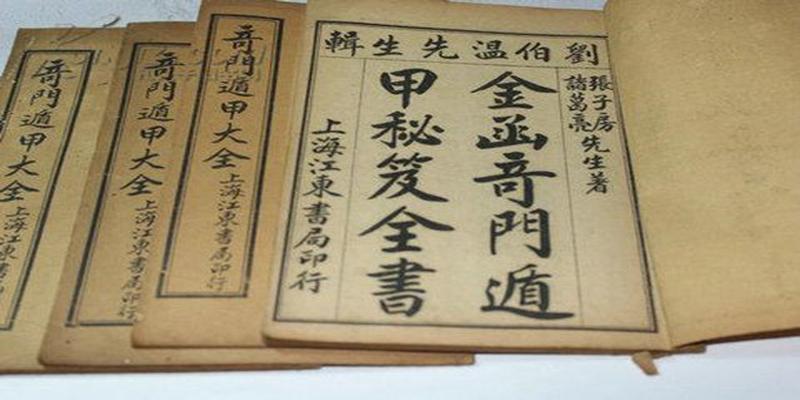 劉伯温先生輯
張子房
諸葛亮先生著
金函奇門遁
甲秘笈全書
上海江東書局印行
奇門遁甲大全
上海江東書局印行
奇門遁甲大全
上海江東書局印行
奇門遁甲大全
上海江東書局印行